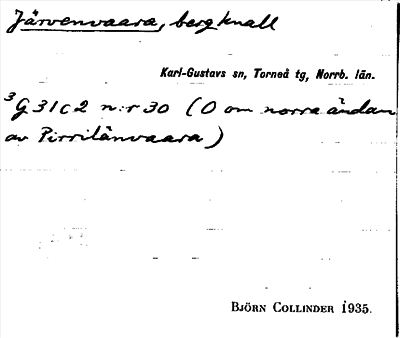 Järvenvaara, bergknall
Karl-Gustavs sn, Torneå tg, Norrb. län.
3 G 31 c 2 n:r 30 (O om norra ändan
av Pirrilänvaara)
BJÖRN COLLINDER 1935.